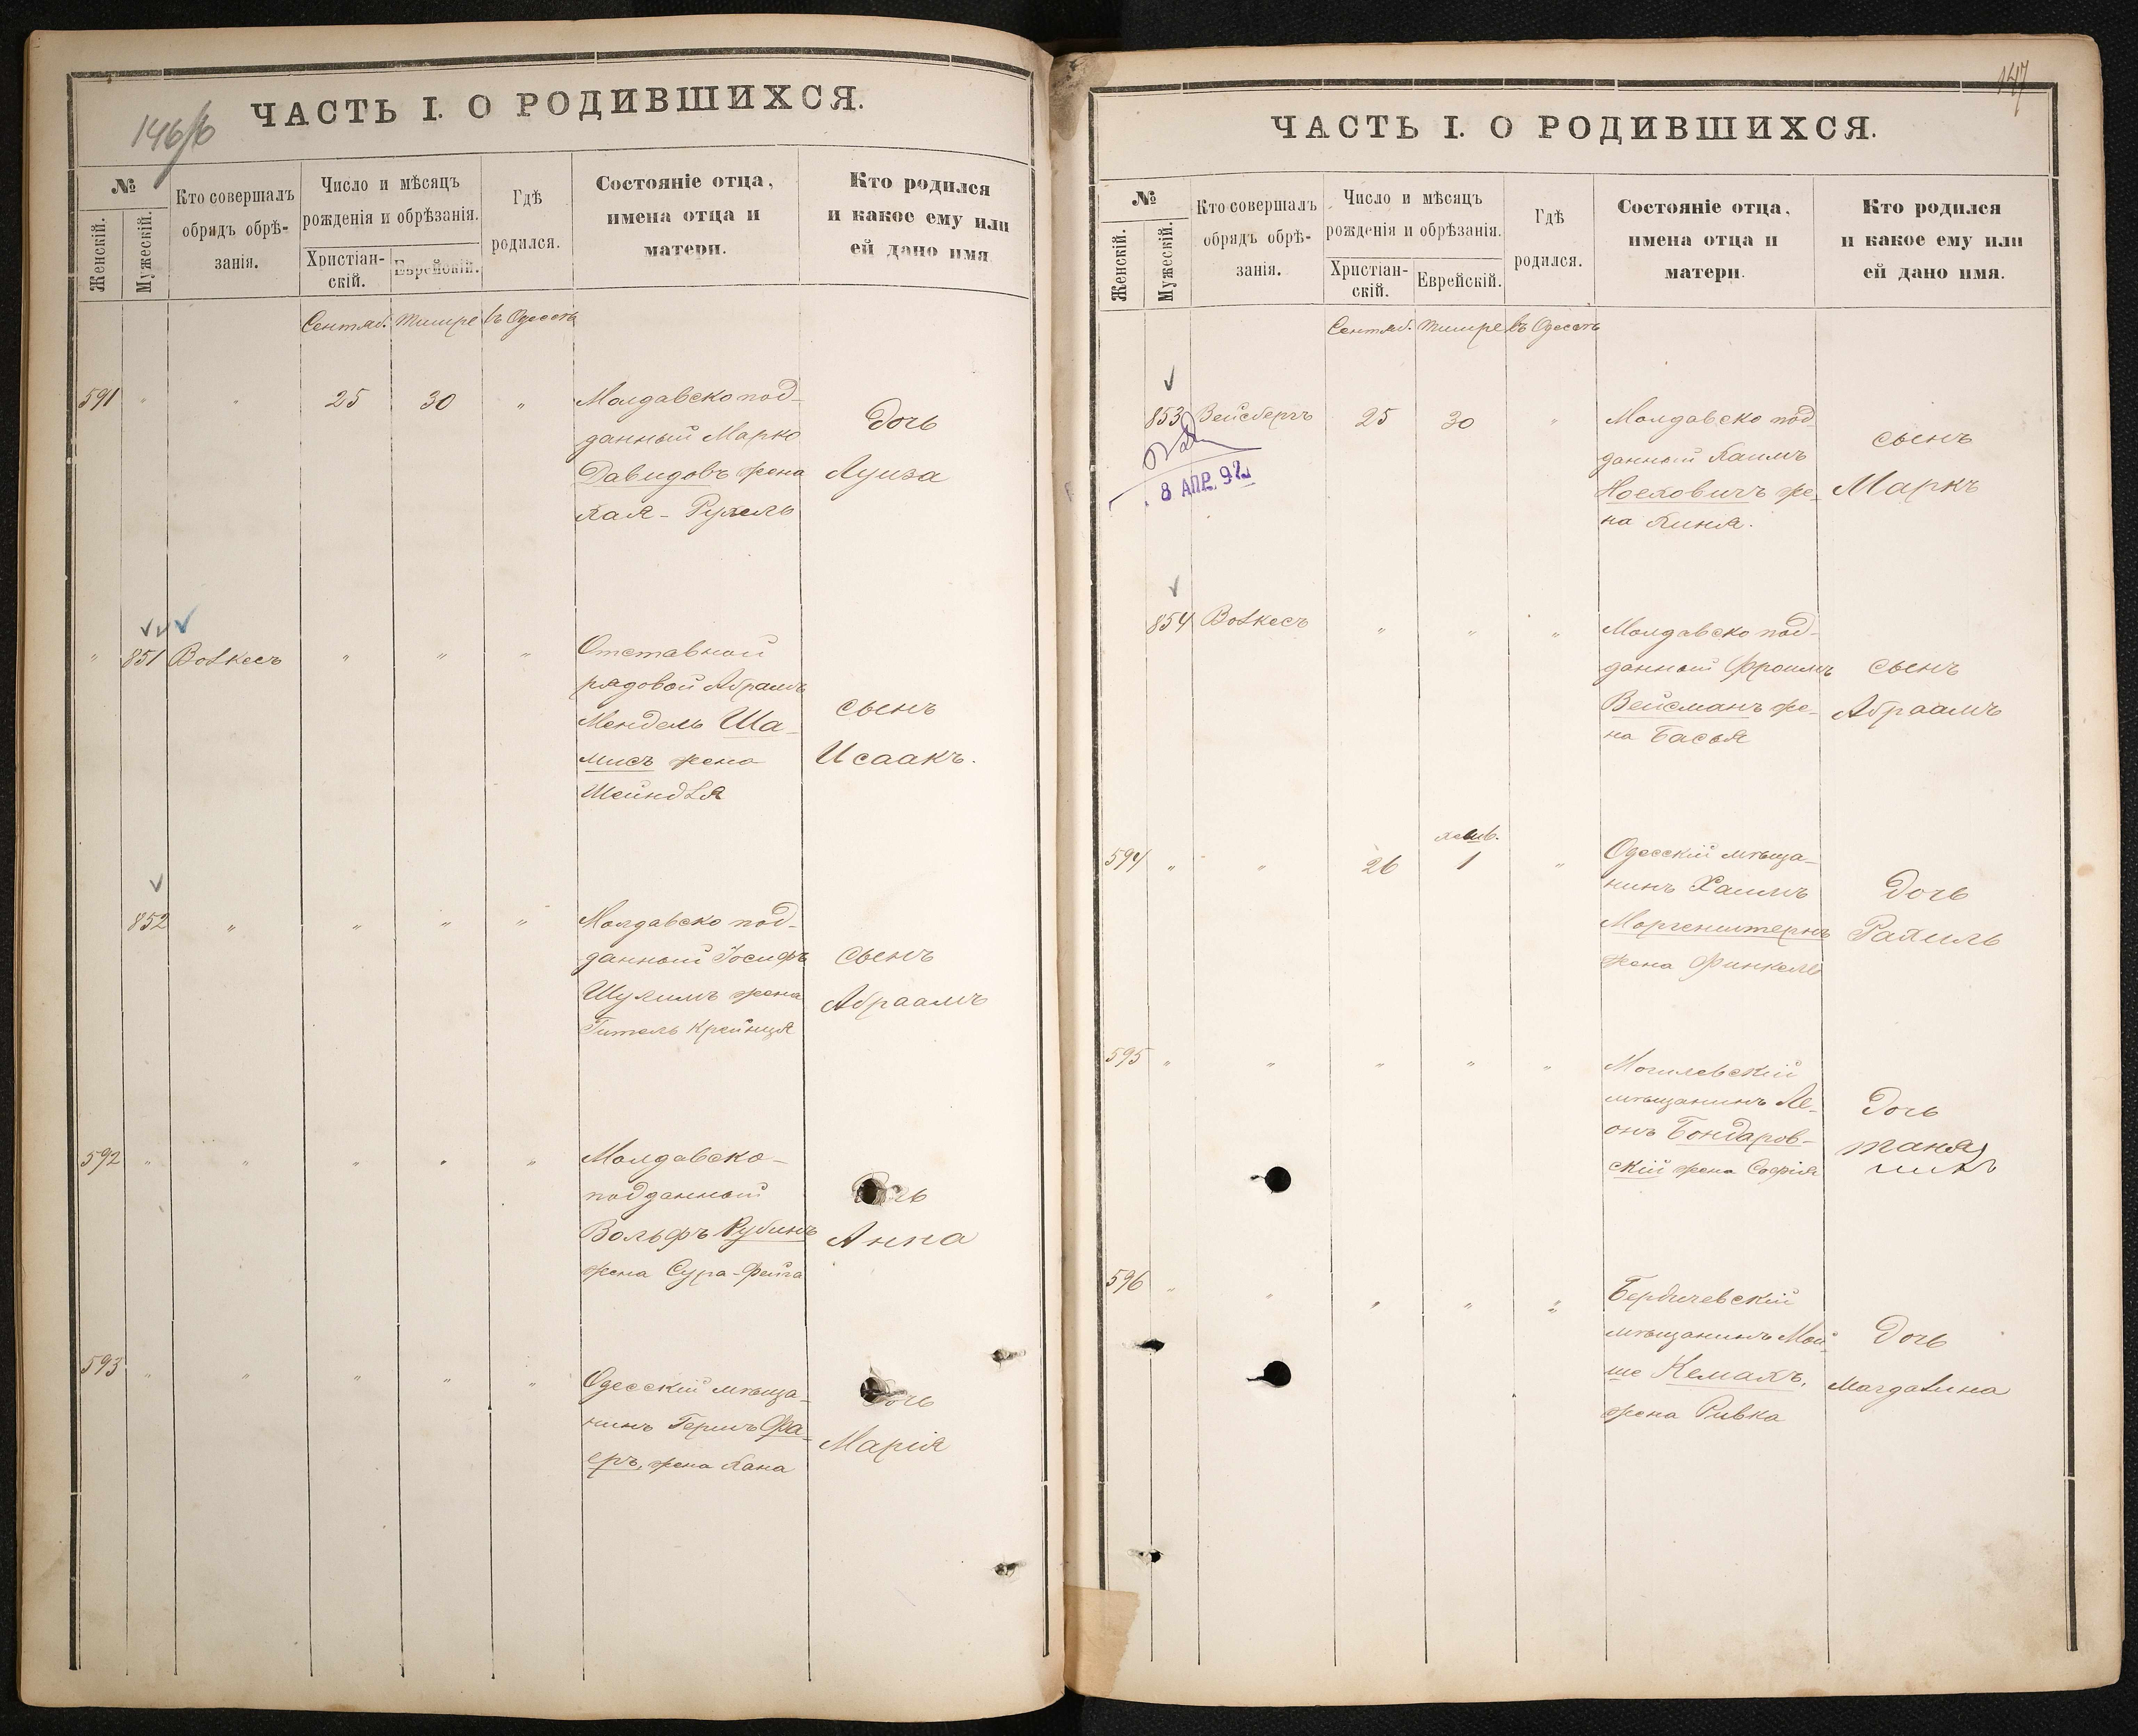 146об
ЧАСТЬ I. О РОДИВШИХСЯ.
№
Женскій.
Мужескій.
Кто совершалъ
обрядъ обрѣ-
занія.
Число и мѣсяцъ
рожденія и обрѣзанія.
Христіан-
скій.
Еврейскій.
Гдѣ
родился.
Состояніе отца,
имена отца и
матери.
Кто родился
и какое ему или
ей дано имя
Сентяб. Тишре въ Одессѣ
591 " " 25 30 "
Молдавско под-
данный Марко
Давидовъ жена
Хая-Рухель
Дочь
Луиза
" 851 Волкесъ " " "
Отставной
рядовой Абрамъ
Мендель Ша-
мисъ жена
Шейндля
сынъ
Исаакъ.
852 " " " "
Молдавско под-
данный Іосифъ
Шулимъ жена
Гитель Крейнця
сынъ
Абраамъ
592 " " " " "
Молдавско-
подданный
Вольфъ Рубинъ
жена Сура-Фейга
Дочь
Анна
593 " " " " "
Одесскій мѣща-
нинъ Гершъ Фа-
еръ, жена Хана
Дочь
Марія
147
ЧАСТЬ I. О РОДИВШИХСЯ.
№
Женскій.
Мужескій.
Кто совершалъ
обрядъ обрѣ-
занія.
Число и мѣсяцъ
рожденія и обрѣзанія.
Христіан-
скій.
Еврейскій.
Гдѣ
родился.
Состояніе отца,
имена отца и
матери.
Кто родился
и какое ему или
ей дано имя.
Сентяб. Тишре въ Одессѣ
853 Вейсбергъ 25 30 "
8 АПР. 92
Молдавско под-
данный Хаимъ
Носховичъ же-
на Хиня.
сынъ
Маркъ
854 Волкесъ " " "
Молдавско под-
данный Фроимъ
Вейсманъ же-
на Бася
сынъ
Абраамъ
594 " " 26 1 "
Одесскій мѣща-
нинъ Хаимъ
Моргенштернъ
жена Финкель
Дочь
Рахиль
595 " " " " "
Могилевскій
мѣщанинъ Ле-
онъ Бондаров-
скій жена Софія
Дочь
Таня
596 " " " " "
Бердичевскій
мѣщанинъ Мой-
ше Кемахъ,
жена Ривка
Дочь
Магдалина